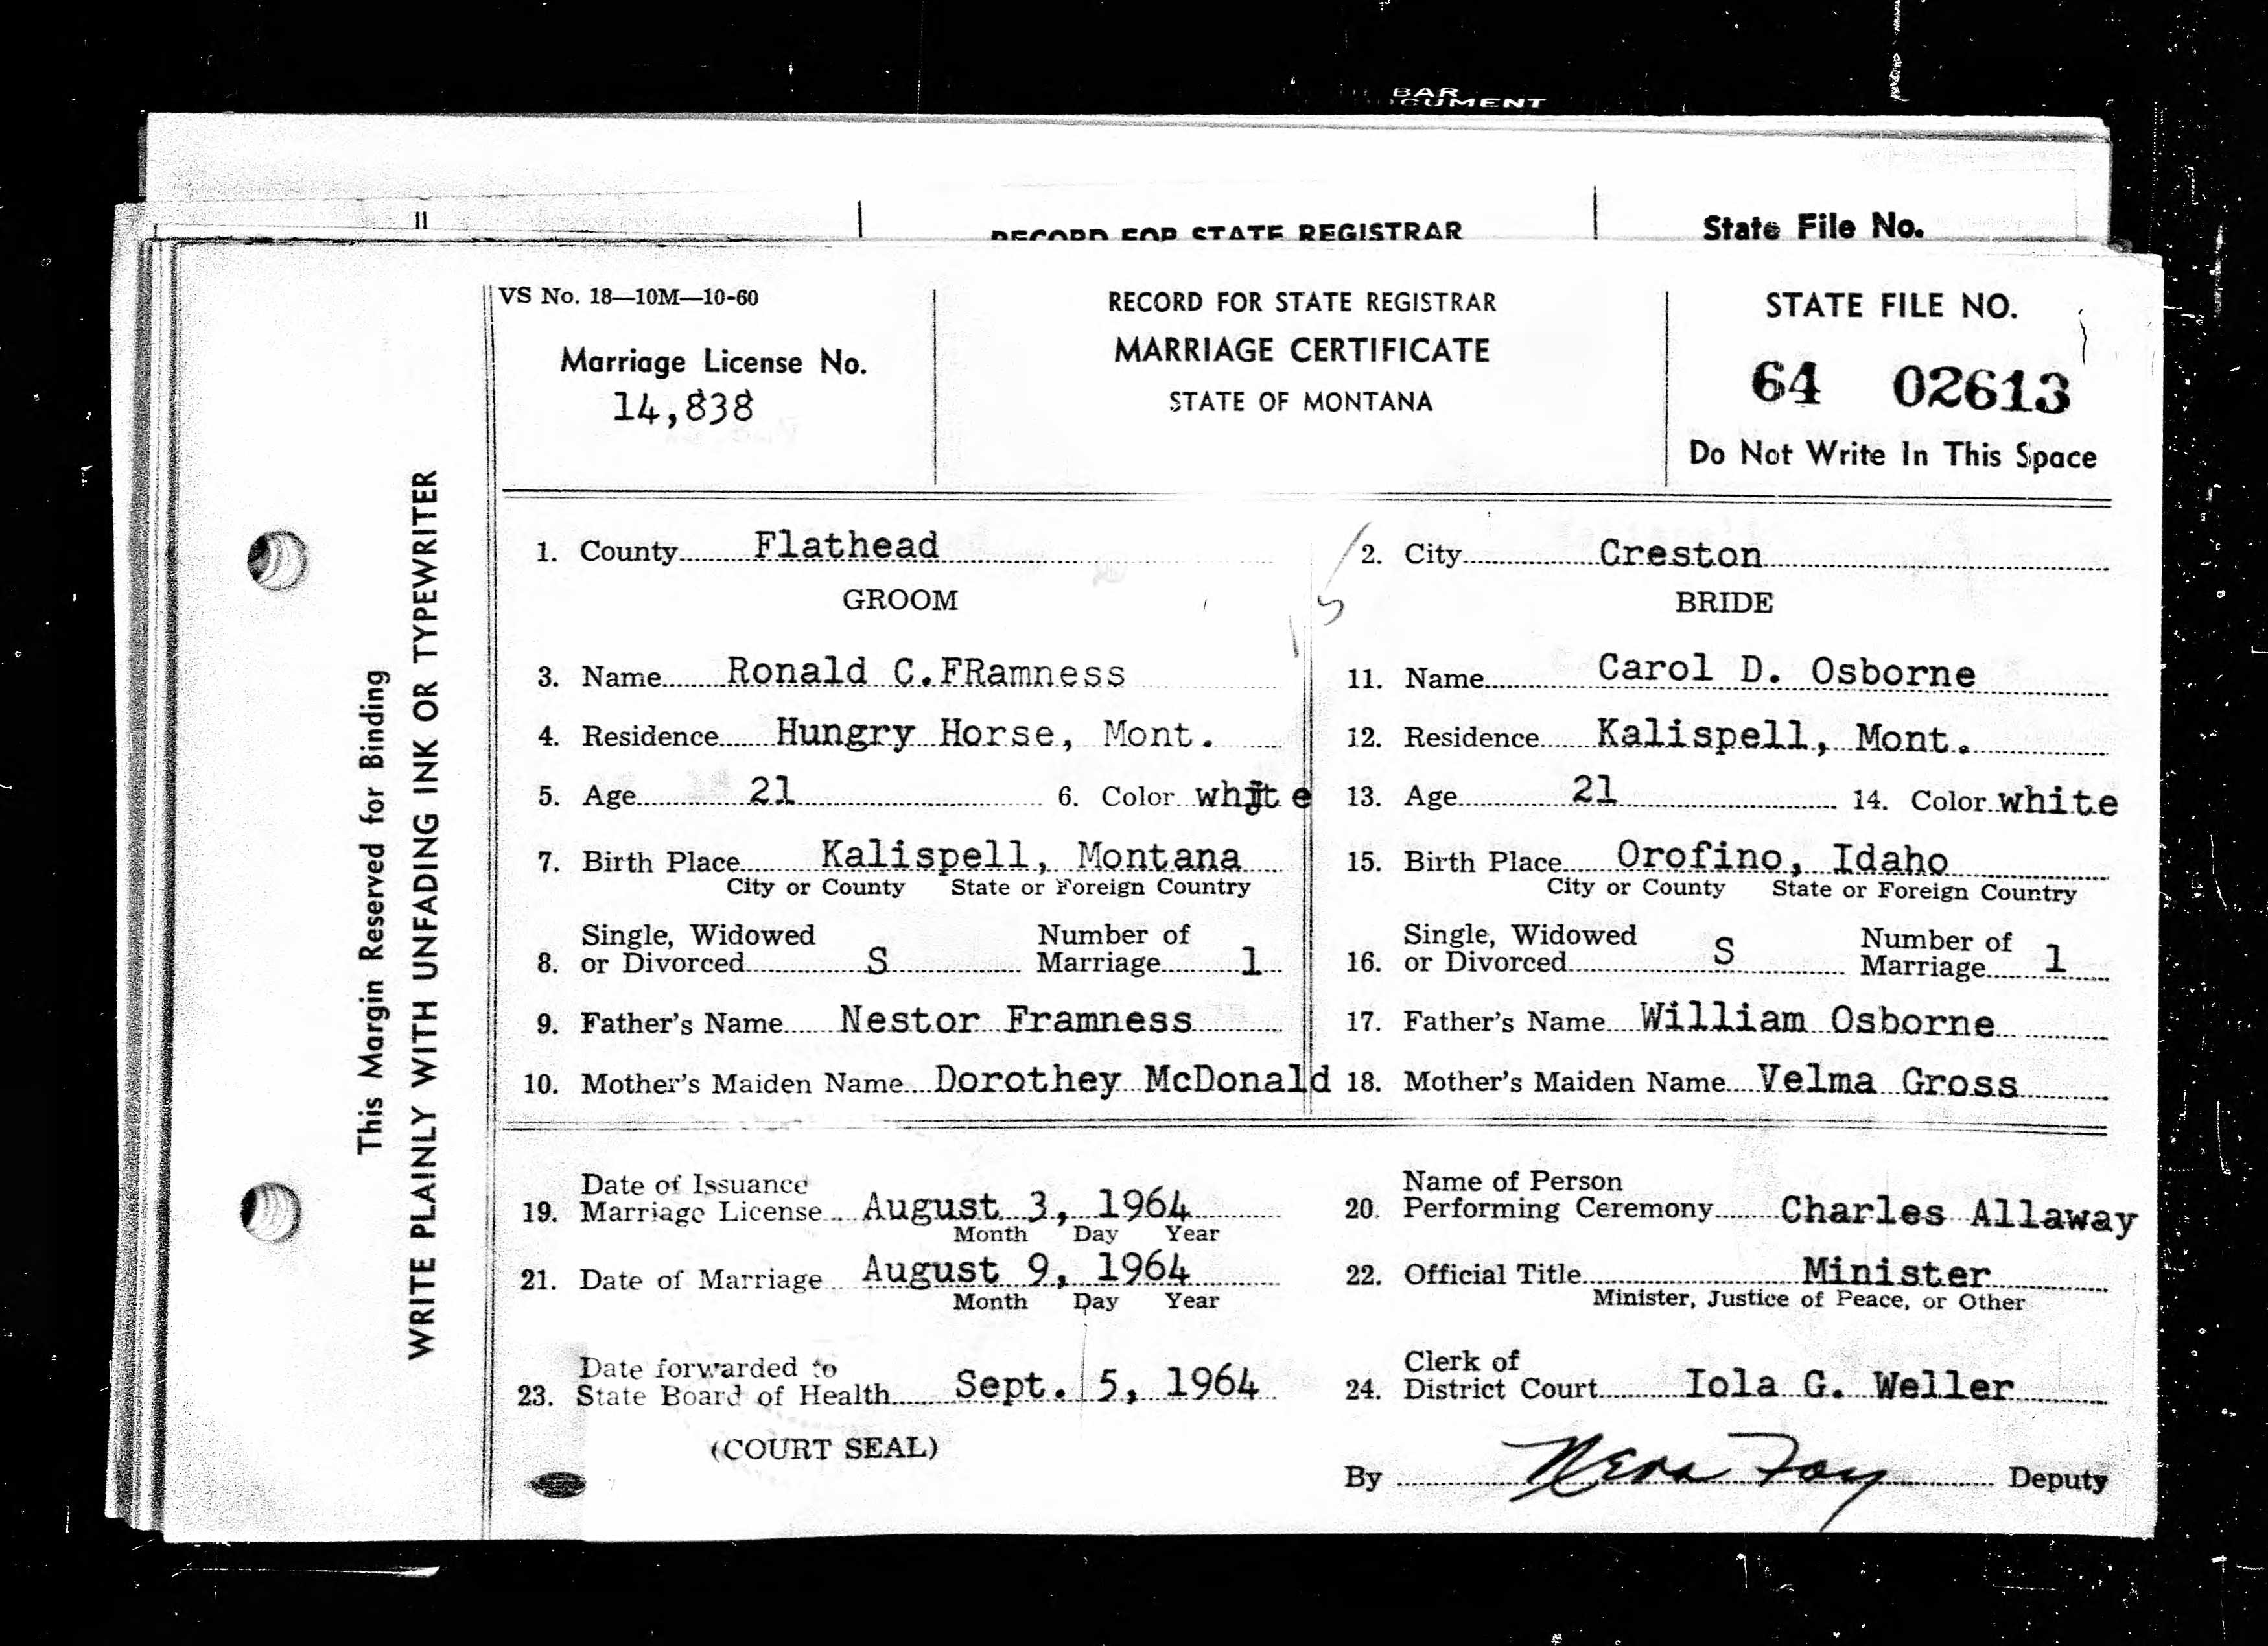 BAR
CUMENT
RECORD FOR STATE REGISTRAR
State File No.
VS No. 18—10M—10-60
Marriage License No.
14,838
RECORD FOR STATE REGISTRAR
MARRIAGE CERTIFICATE
STATE OF MONTANA
STATE FILE NO.
64 02613
Do Not Write In This Space
This Margin Reserved for Binding
WRITE PLAINLY WITH UNFADING INK OR TYPEWRITER
1. County Flathead
2. City Creston
GROOM
BRIDE
3. Name Ronald C.FRamness
11. Name Carol D. Osborne
4. Residence Hungry Horse, Mont.
12. Residence Kalispell, Mont.
5. Age 21 6. Color white
13. Age 21 14. Color white
7. Birth Place Kalispell, Montana
City or County State or Foreign Country
15. Birth Place Orofino, Idaho
City or County State or Foreign Country
Single, Widowed Number of
8. or Divorced S Marriage 1
Single, Widowed Number of
16. or Divorced S Marriage 1
9. Father's Name Nestor Framness
17. Father's Name William Osborne
10. Mother's Maiden Name Dorothey McDonald
18. Mother's Maiden Name Velma Gross
Date of Issuance
19. Marriage License August 3, 1964
Month Day Year
Name of Person
20. Performing Ceremony Charles Allaway
21. Date of Marriage August 9, 1964
Month Day Year
22. Official Title Minister
Minister, Justice of Peace, or Other
Date forwarded to
23. State Board of Health Sept. 5, 1964
Clerk of
24. District Court Iola G. Weller
(COURT SEAL)
By Neva Foy Deputy